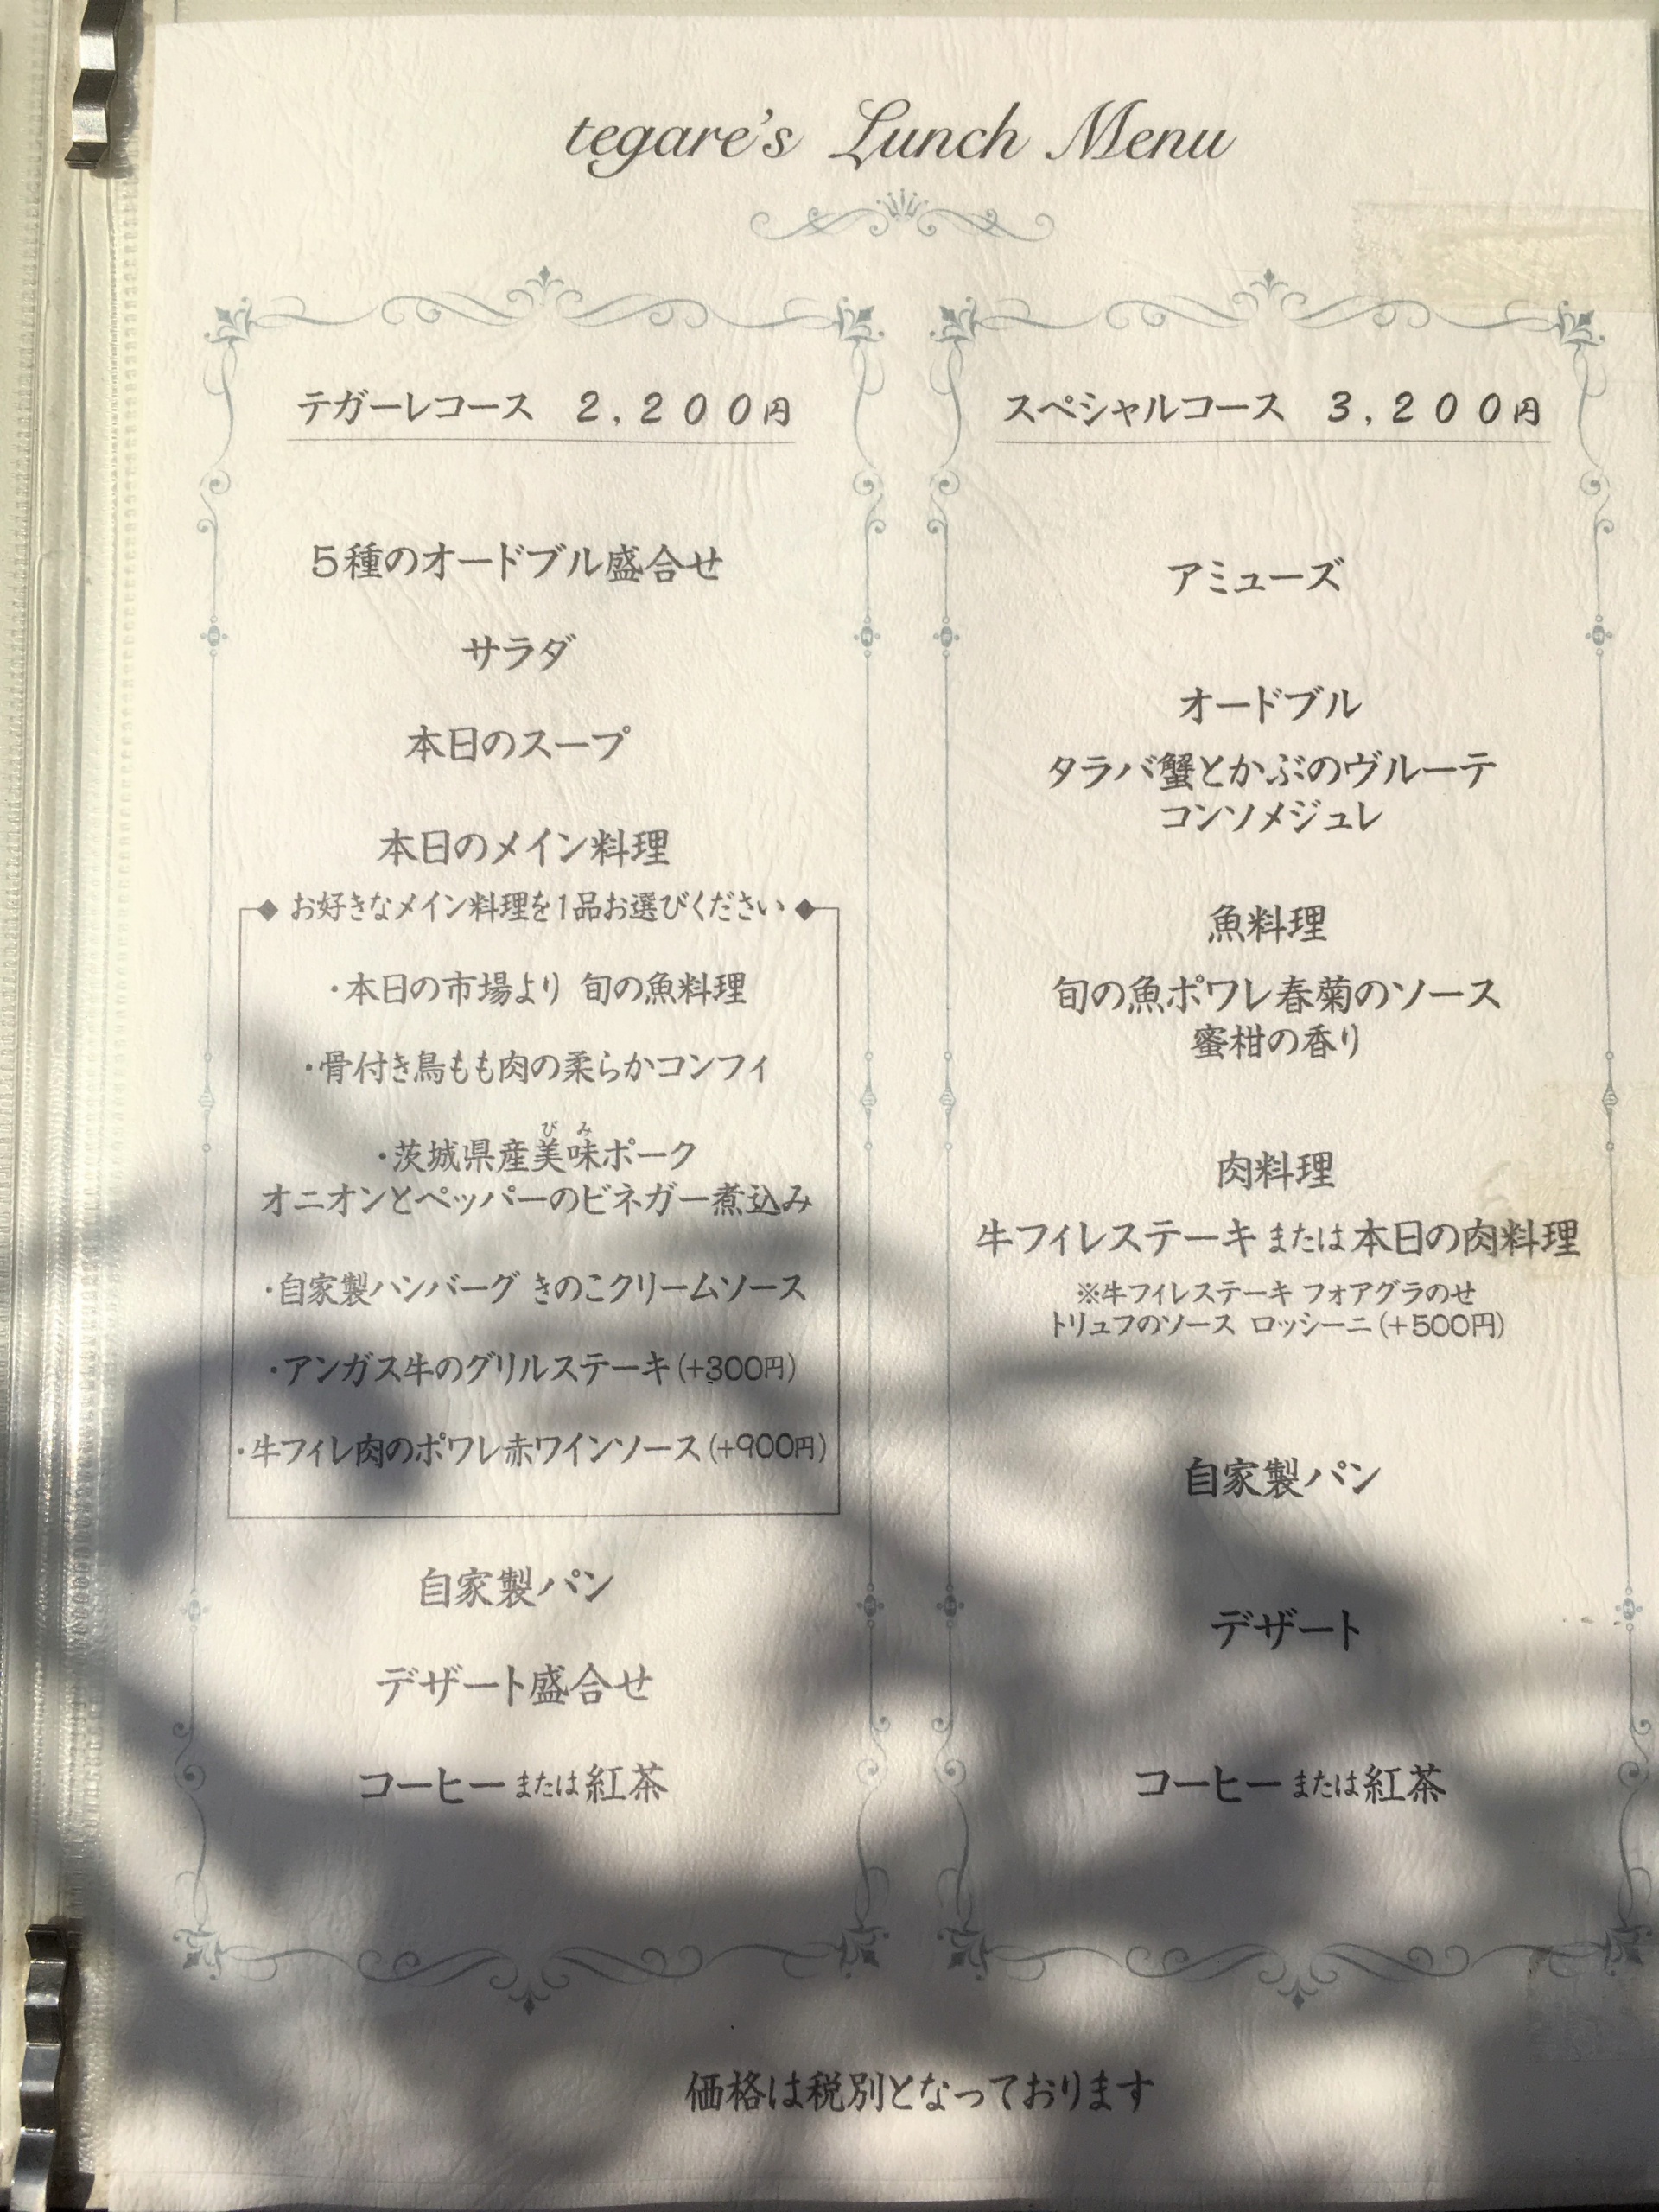 tegare's Lunch Menu
テガーレコース 2,200円
5種のオードブル盛合せ
サラダ
本日のスープ
本日のメイン料理
◆お好きなメイン料理を1品お選びください◆
・本日の市場より 旬の魚料理
・骨付き鳥もも肉の柔らかコンフィ
びみ
・茨城県産美味ポーク
オニオンとペッパーのビネガー煮込み
・自家製ハンバーグ きのこクリームソース
・アンガス牛のグリルステーキ(+300円)
・牛フィレ肉のポワレ赤ワインソース(+900円)
自家製パン
デザート盛合せ
コーヒーまたは紅茶
スペシャルコース 3,200円
アミューズ
オードブル
タラバ蟹とかぶのヴルーテ
コンソメジュレ
魚料理
旬の魚ポワレ春菊のソース
蜜柑の香り
肉料理
牛フィレステーキまたは本日の肉料理
※牛フィレステーキ フォアグラのせ
トリュフのソース ロッシーニ(+500円)
自家製パン
デザート
コーヒーまたは紅茶
価格は税別となっております